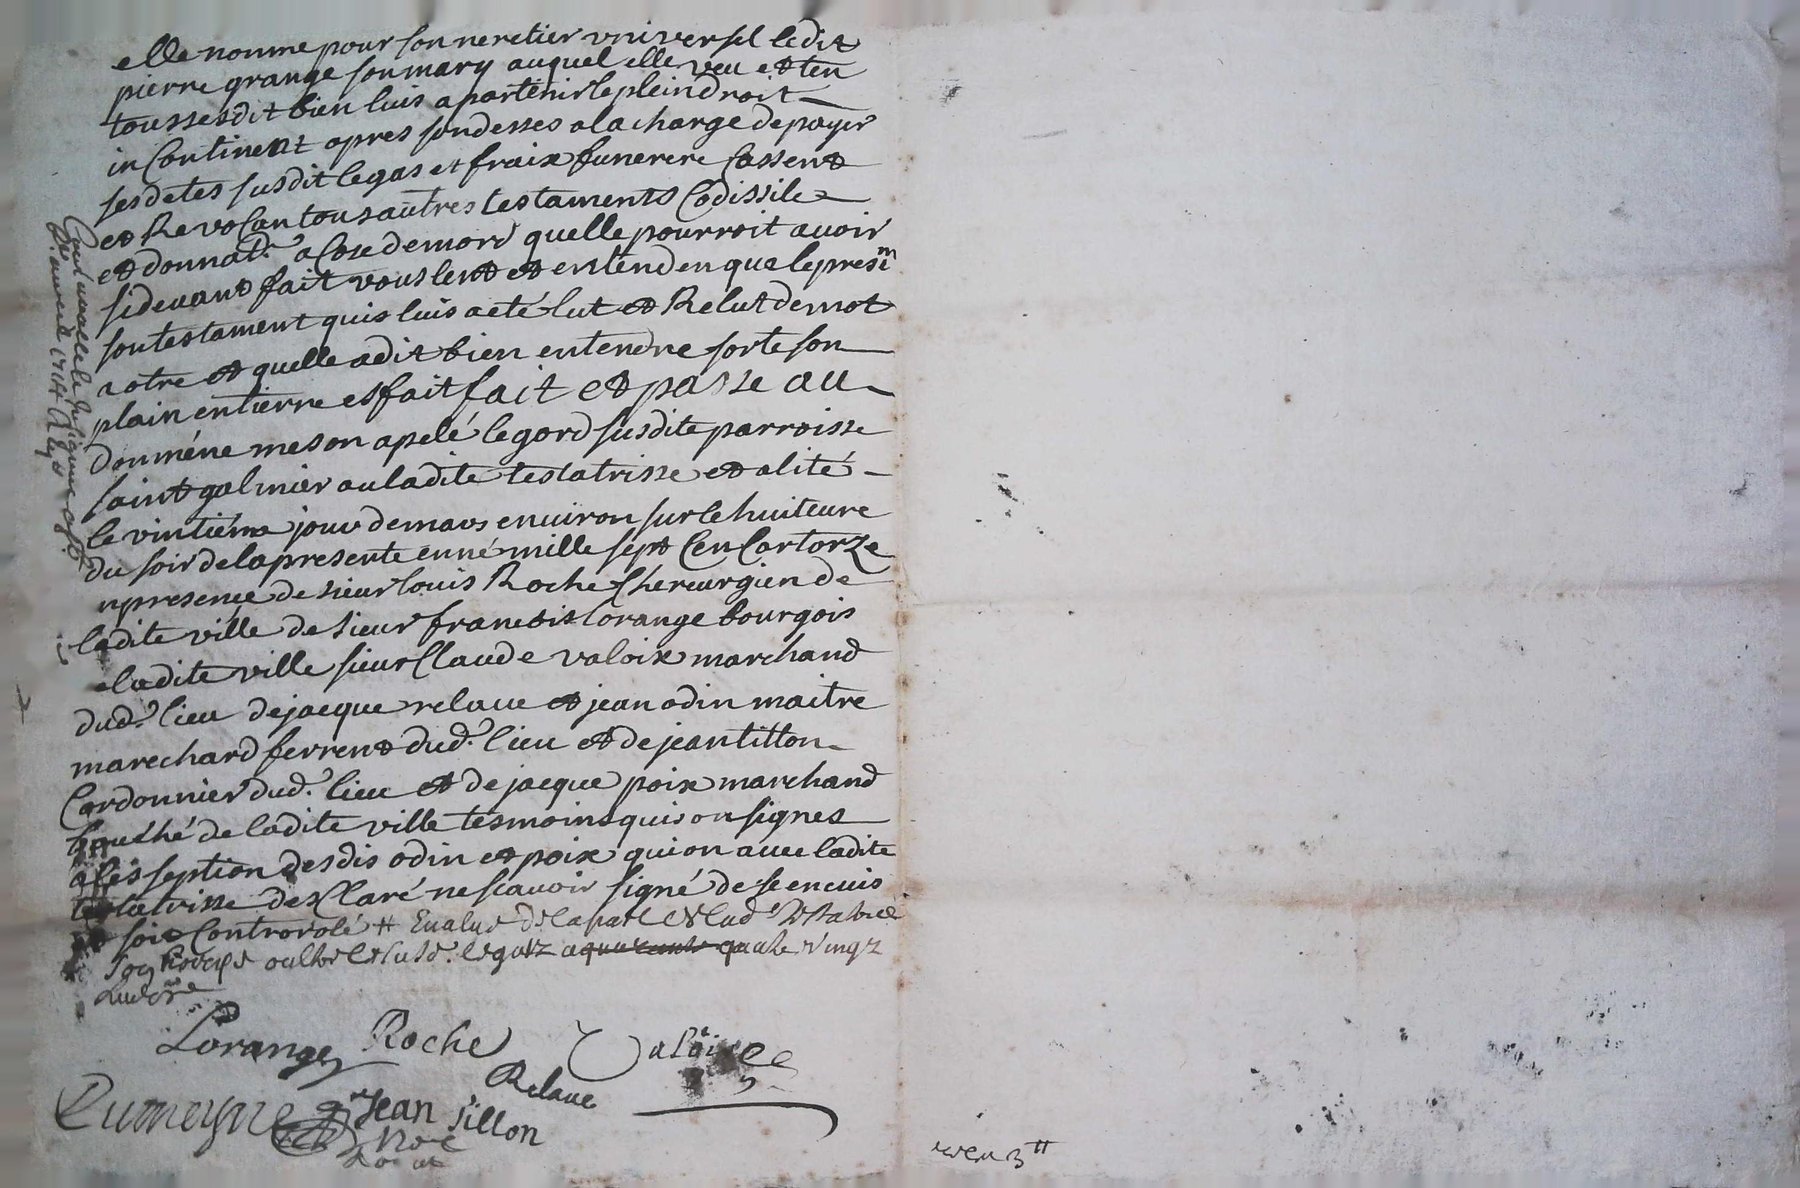 elle nomme pour son neretier vniversel ledit
pierre grange son mary auquel elle veu et ten
toussesdit bien luis apartenir le plein droit
in Continent apres son desses a la charge de payer
ses detes susdit legas et fraix funerere Cassent
et Revocan tous autres testaments Codissile
et donnat.ⁿ a Cose de mord quelle pourroit auoir
sideuant fait voulent et entend en que le presⁿᵗ
son testament quis luis a eté lut et Relut de mot
a otre et quelle a dit bien entendre sorte son
plain entierre esfait fait et passe au
donméne meson apelé le gord susdite parroisse
saint galmier au ladite testatrisse et alité
le vintiéme jour de mars enuiron sur le huiteure
du soir de la presente enné mille sept Cen Cartorze
npresence de sieur louis Roche Cherurgien de
ladite ville de sieur francois lorange bourgois
eladite ville sieur Claude valoix marchand
dud.ᵗ lieu de jacque relaue et jean odin maitre
marechard ferrent dud.ᵗ lieu et de jean tillon
Cordonnier dud.ᵗ lieu et de jacque poix marchand
bouché de ladite ville tesmoins quis on signes
a lesseption desdis odin et poix qui on auec ladite
testatrisse desClaré ne scauoir signé de se encuis
et soit Controrolé # Eualué de la part
oultre le susd. legatz a quarante quatre vingz
Lorange Roche Valoix
Relaue
Dumeyne Jean tillon